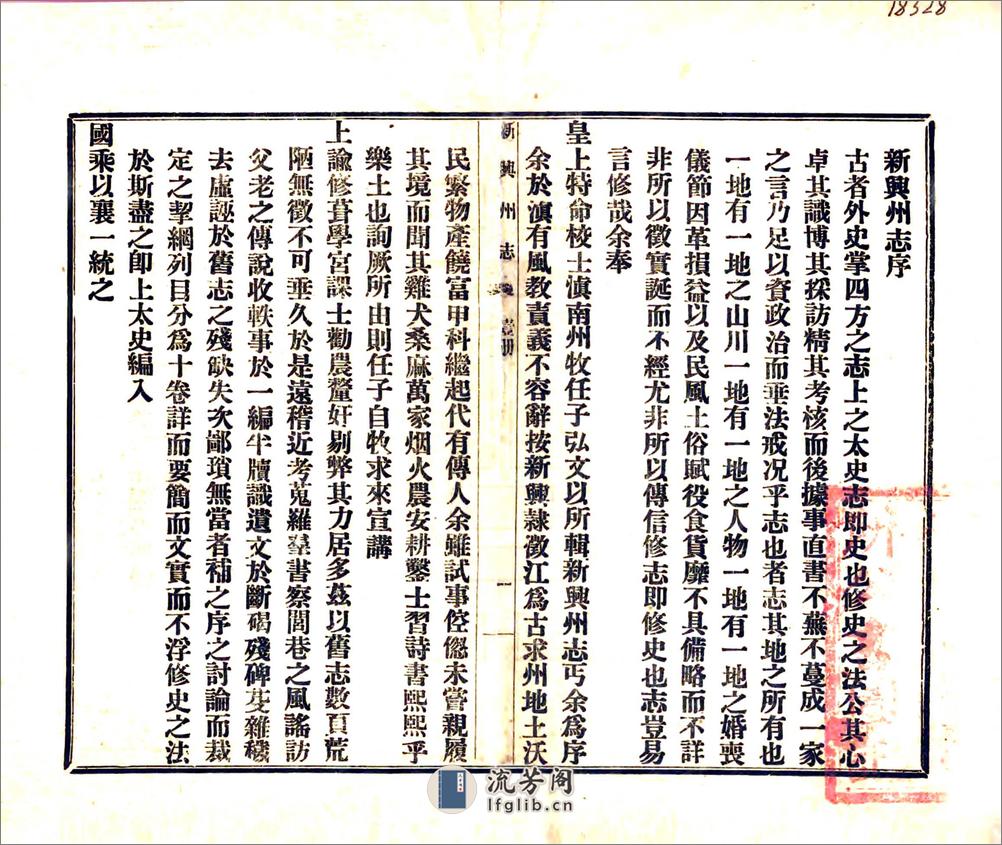 18328
新興州志序
古者外史掌四方之志上之太史志即史也修史之法公其心
卓其識博其採訪精其考核而後據事直書不蕪不蔓成一家
之言乃足以資政治而垂法戒况乎志也者志其地之所有也
一地有一地之山川一地有一地之人物一地有一地之婚喪
儀節因革損益以及民風土俗賦役食貨靡不具備略而不詳
非所以徵實誕而不經尤非所以傳信修志即修史也志豈易
言修哉余奉
皇上特命校士滇南州牧任子弘文以所輯新興州志丐余為序
余於滇有風教責義不容辭按新興隷澂江為古求州地土沃
新興州志
壹册
一
民繁物產饒富甲科繼起代有傳人余雖試事倥傯未嘗親履
其境而聞其雞犬桑麻萬家烟火農安耕鑿士習詩書熙熙乎
樂土也詢厥所由則任子自牧求來宣講
上諭修葺學宮課士勸農釐奸剔弊其力居多茲以舊志數頁荒
陋無徵不可垂久於是遠稽近考蒐羅羣書察閭巷之風謠訪
父老之傳說收軼事於一編半牘識遺文於斷碣殘碑芟雜穢
去虛誣於舊志之殘缺失次鄙瑣無當者補之序之討論而裁
定之挈綱列目分為十卷詳而要簡而文實而不浮修史之法
於斯盡之即上太史編入
國乘以襄一統之
流芳阁
lfglib.cn